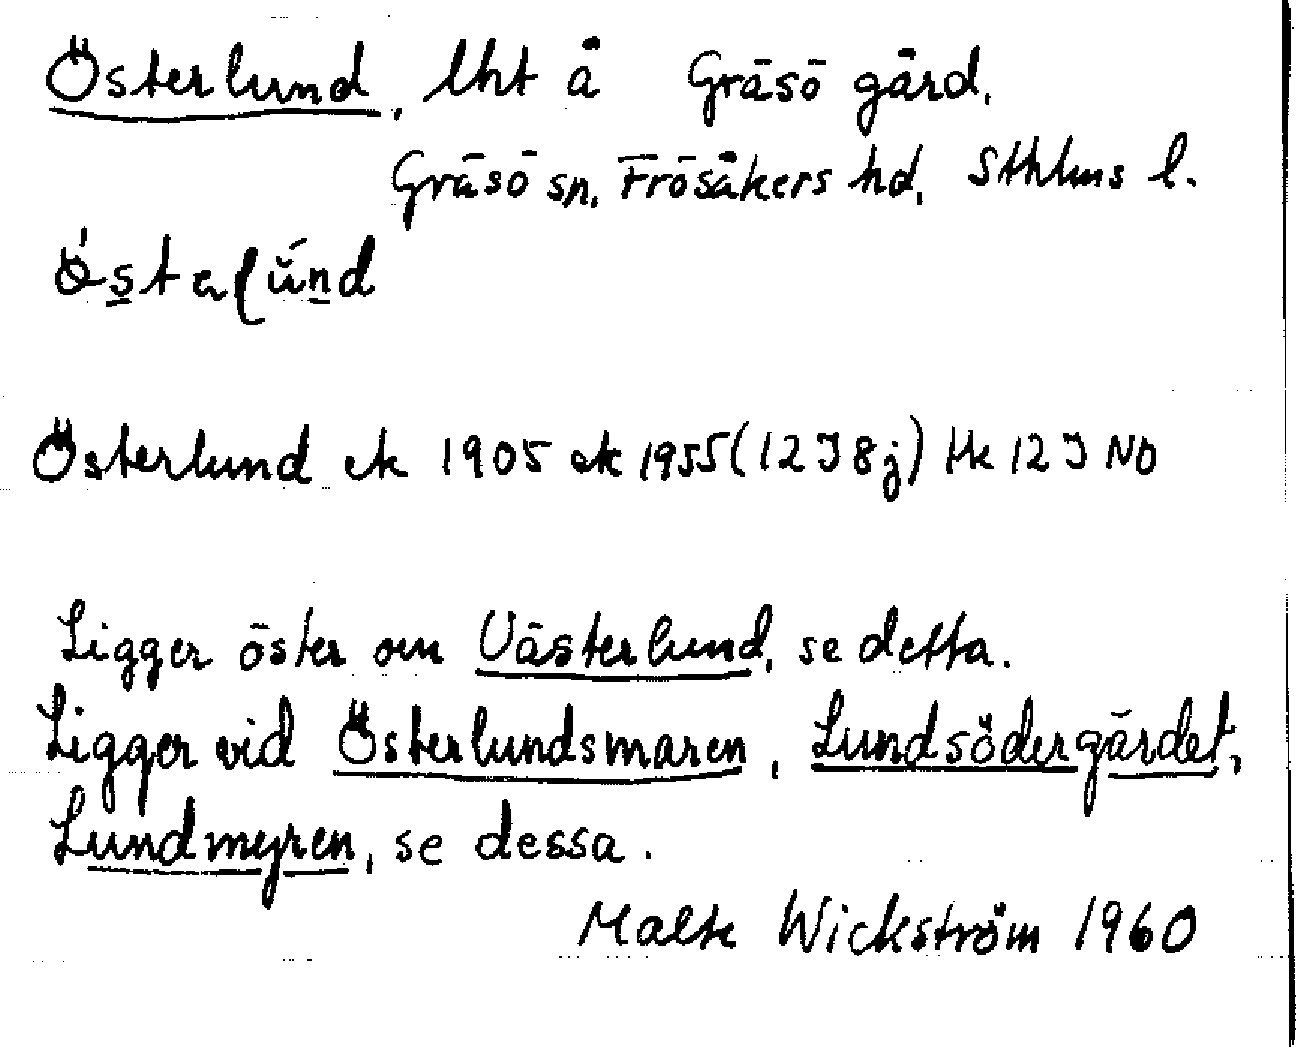 Österlund, lht å Gräsö gård,
Gräsö sn, Frösåkers hd, Sthlms l.
Österlund ek 1905 ek 1955 (12I8j) Hk 12 I NO
Ligger öster om Västerlund, se detta.
Ligger vid Österlundsmaren, Lundsödergärdet,
Lundmyren, se dessa.
Malte Wickström 1960